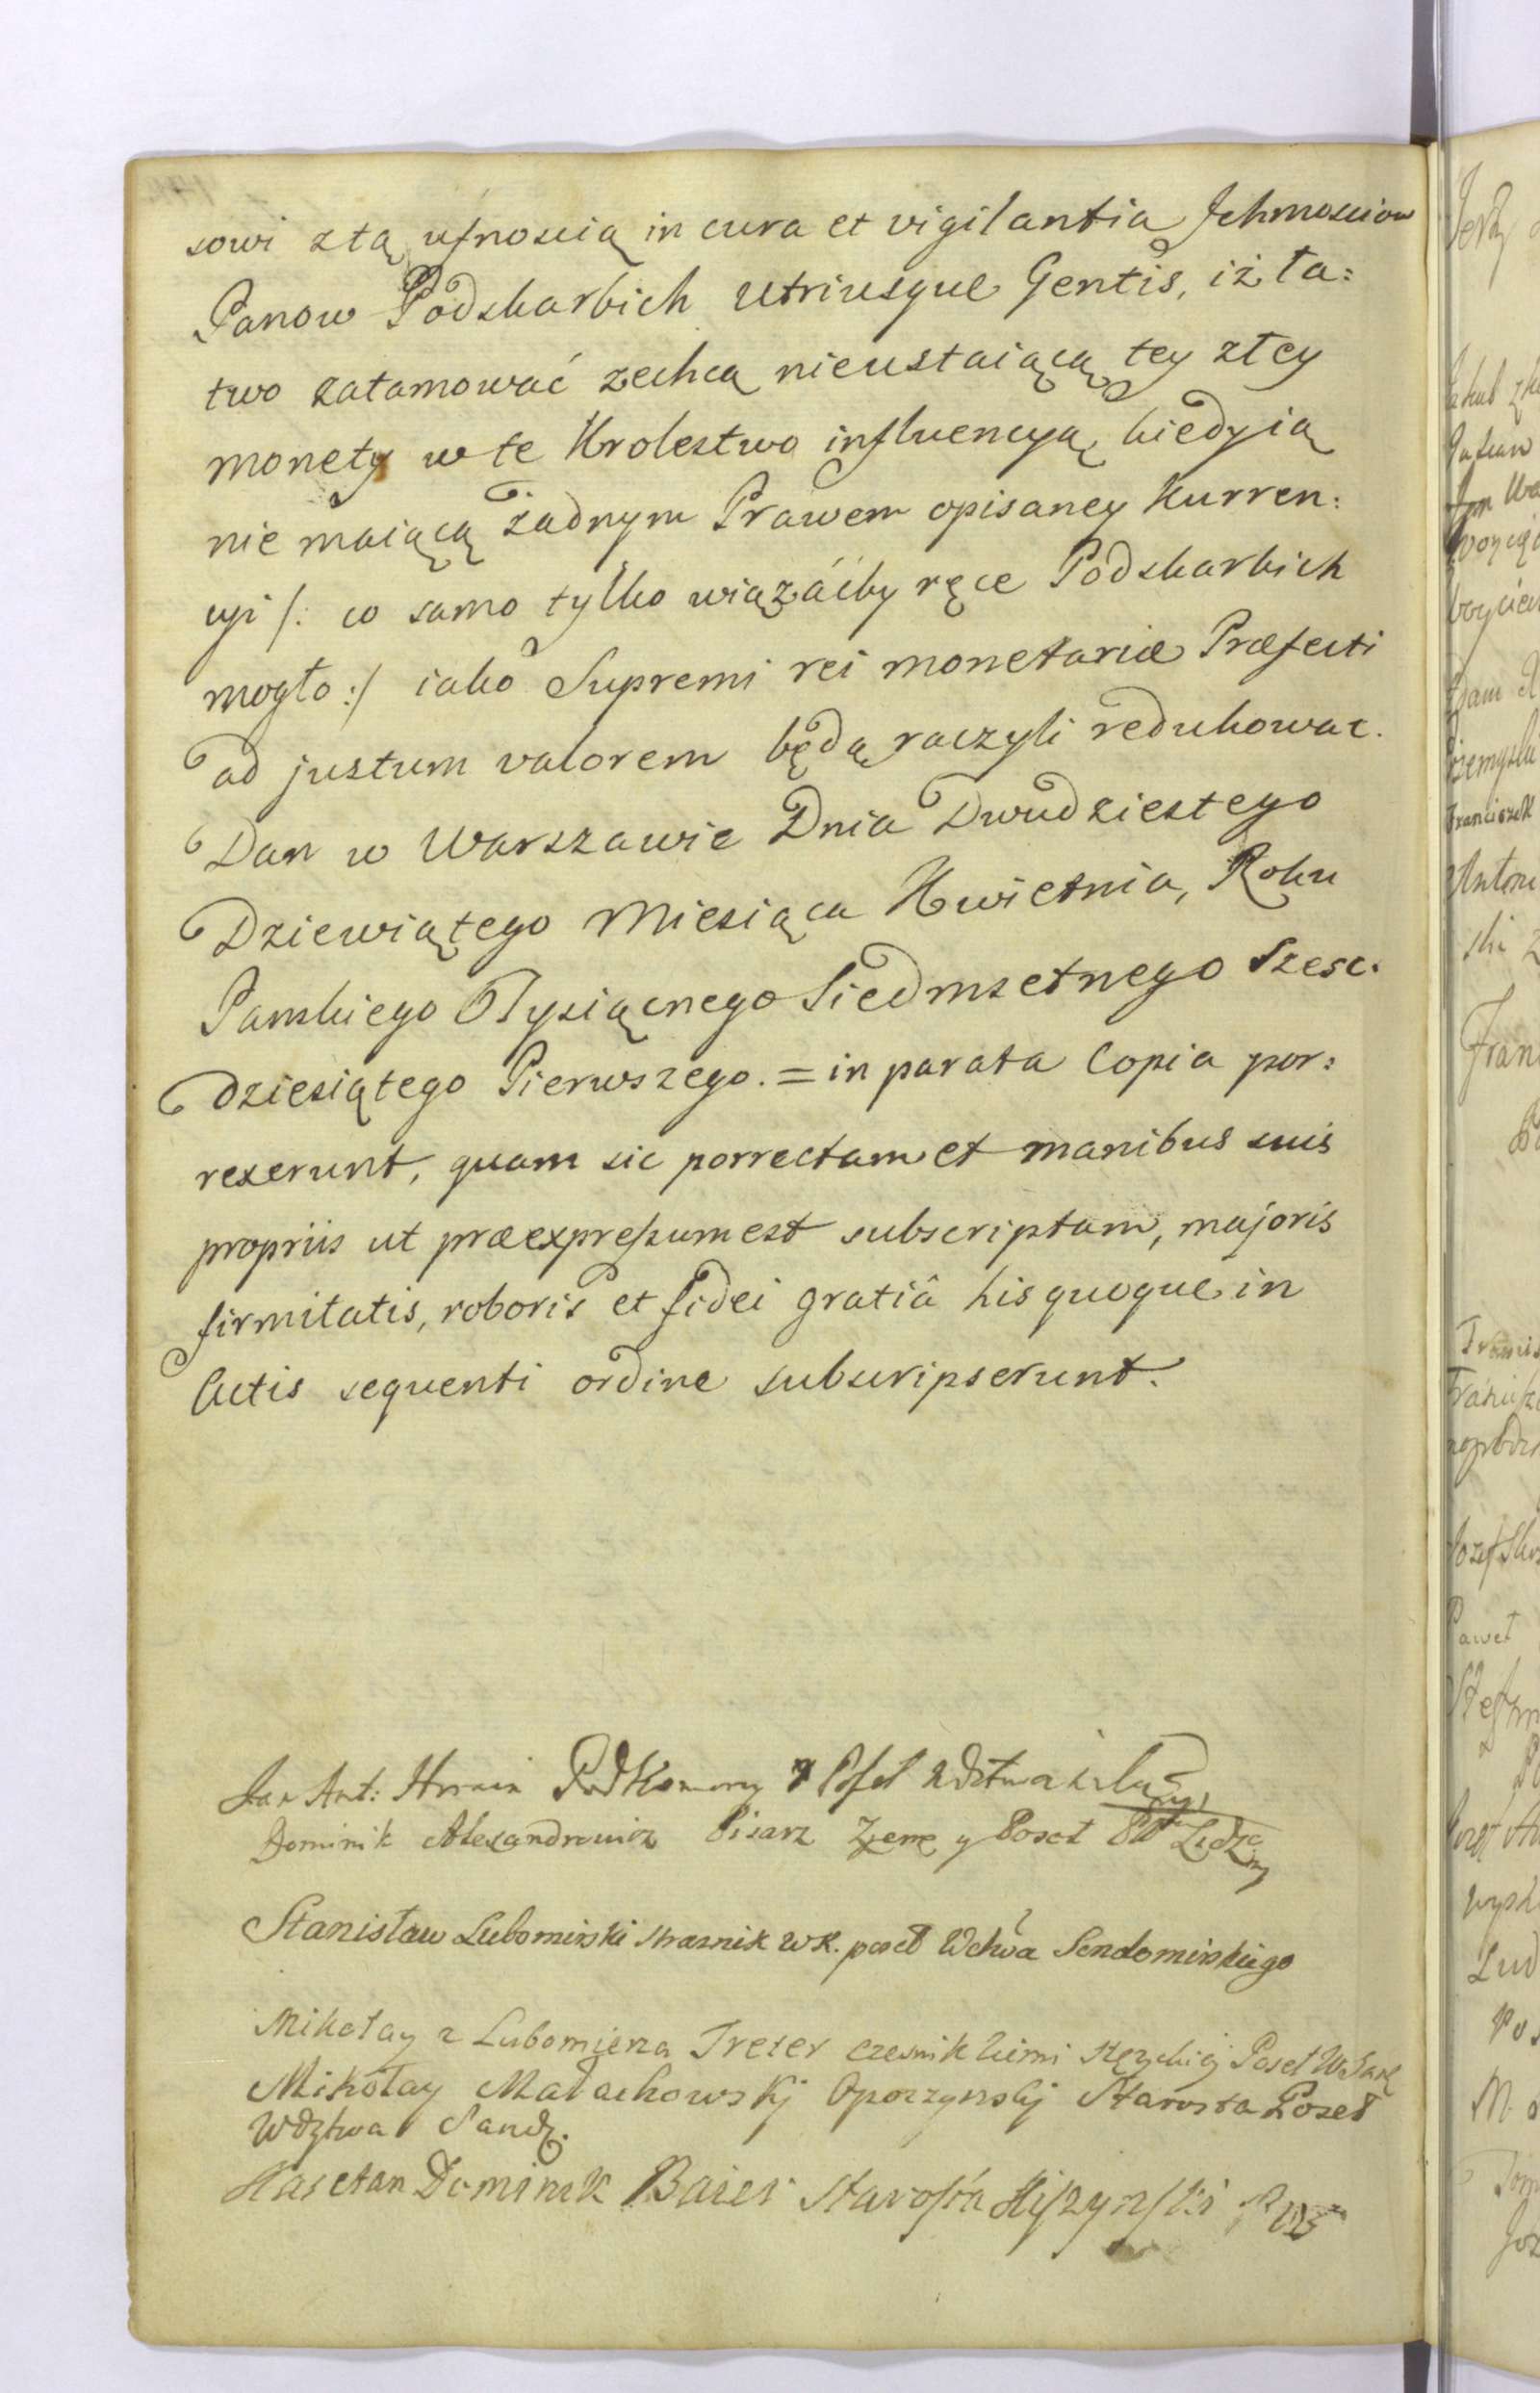 sowi z tą ufnoscią in cura et vigilantia Jchmosciow
Panow Podskarbich Utriusque Gentis, iż ła:
two zatamować zechcą nieustaiącą tey złey
monety w te Krolestwo influencyą, kiedy ią
nie maiącą żadnym Prawem opisaney Kurren:
cyi /: co samo tylko wiązáćby ręce Podskarbich
mogło :/ iako Supremi rei monetariæ Præfecti
ad justum valorem będą raczyli redukowac.
Dan w Warszawie Dnia Dwudziestego
Dziewiątego Miesiąca Kwietnia, Roku
Panskiego Tysiącnego Siedmsetnego Szesc.
dziesiątego Pierwszego. = in parata Copia por:
rexerunt, quam sic porrectam et manibus suis
propriis ut præexpressum est subscriptam, majoris
firmitatis, roboris et fidei gratiâ his quoque in
Actis sequenti ordine subscripserunt.
Jan Ant: Horain Podkomorzy y Posel
Dominik Alexandrowicz Pisarz Ziemę y Poseł Ptu Lidz
Stanisław Lubomirski Strasnik WK. poseł Wdtwa Sendomirskiego
Mikołay z Lubomierza Treter czesnik Ziemi Stęzyckiej Poseł W Sand
Mikołay Małachowskj Opoczynskj Starosta Poseł
Wdztwa Sandz.
Kasetan Dominik Baier Starosta